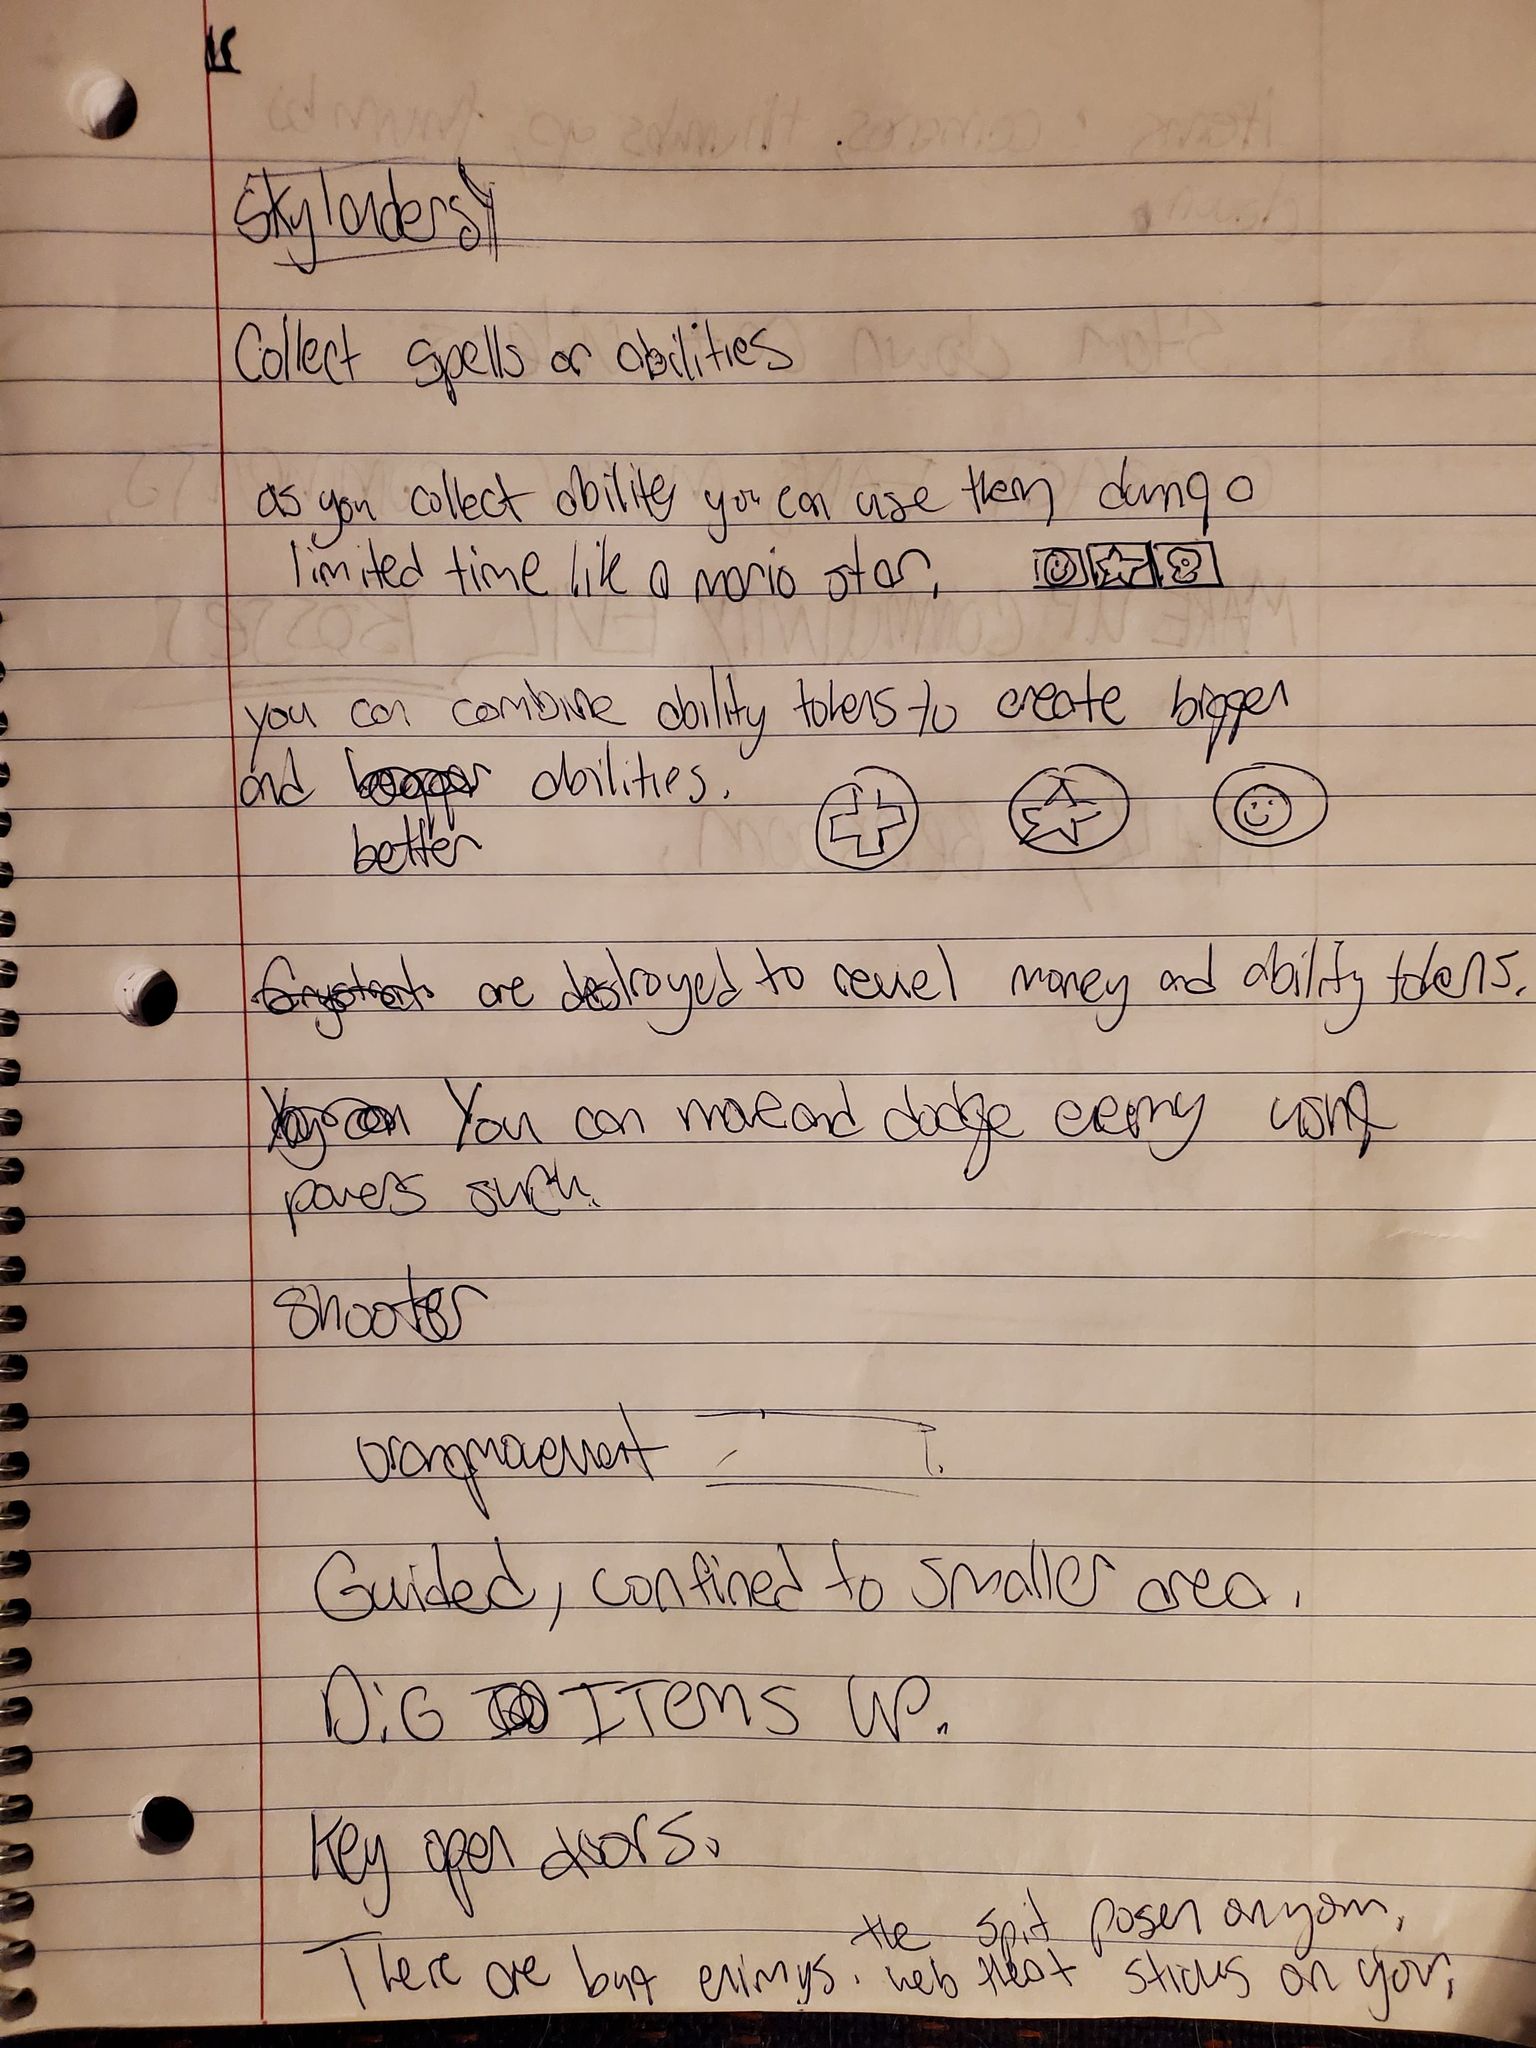 Skylanders
Collect spells or abilities
as you collect abilites you can use them during a
limited time like a mario star.
you can combine ability tokens to create bigger
and abilities.
better
are destroyed to reveel money and ability tokens.
You can move and dodge enemy using
powers such.
Shooter
Guided, confined to smaller area.
DiG ITEMS UP.
Key open doors.
the spit posen on you,
There are bug enimys. web that sticks on you,